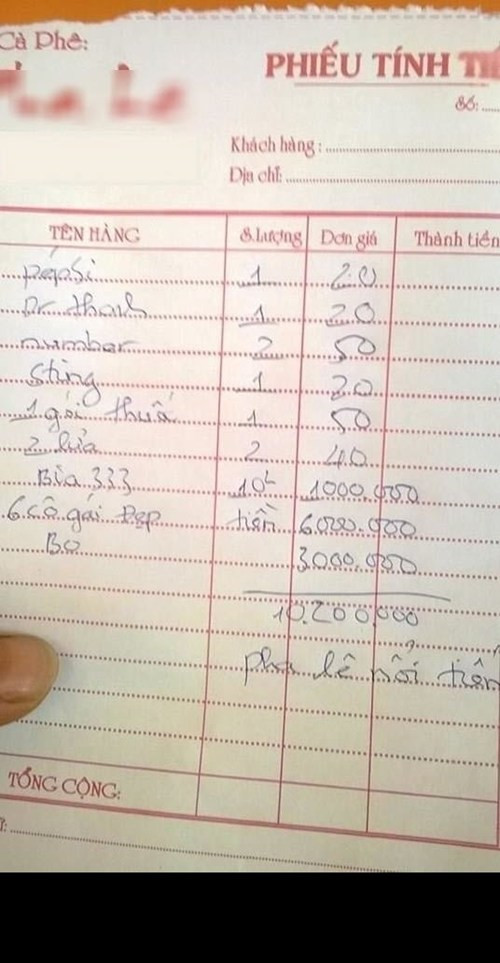 Cà Phê:
PHIẾU TÍNH
Số:
Khách hàng:
Địa chỉ:
TÊN HÀNG S.lượng Đơn giá Thành tiền
pépsi 1 20
Dr thanh 1 20
number 2 50
Sting 1 20
1 gói thuố 1 50
2 lửa 2 40
Bia 333 10L 1000.000
6 cô gái Đẹp tiền 6.000.000
Bo 3000.000
10.200,000
pha lê nổi tiến
TỔNG CỘNG: